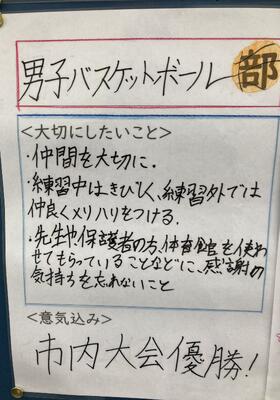 男子バスケットボール部
<大切にしたいこと>
・仲間を大切に.
・練習中はきびしく、練習外では
仲良くメリハリをつける.
・先生や保護者の方、体育館を使わ
せてもらっていることなどに、感謝の
気持ちを忘れないこと
<意気込み>
市内大会優勝!